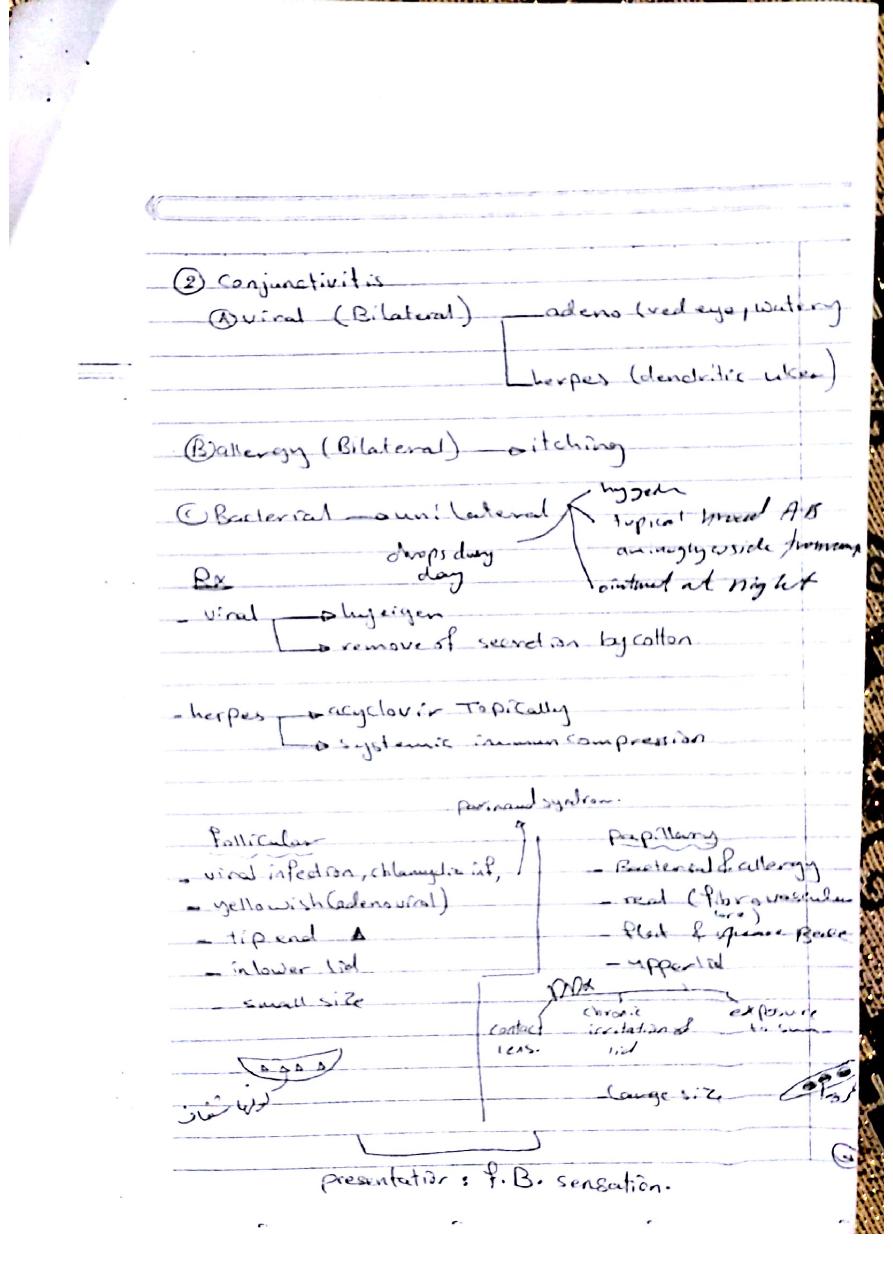 ② Conjunctivitis
Ⓐ viral (Bilateral) adeno (red eye, watery
herpes (dendritic ulcer)
Ⓑ allergy (Bilateral) → itching
Ⓒ Bacterial → unilateral
topical broad A.B
aminoglycoside
drops dury
day
ointmet at night
Rx
- viral → hyjeigen
→ remove of secretion by cotton
- herpes → acyclovir Topically
→ systemic immun compression
parinaud syndrom.
Follicular
- viral infection, chlamydia inf,
- yellowish (adenoviral)
- tip end ▲
- in lower lid
- small size
كولها شفاف
papillary
- Bacterial & allergy
- read (fibrovascular
core)
- flat &
- upper lid
DDx
contact
lens.
chronic
irritation of
lid
exposure
to sun
- Large size
presentation : f.B. sensation.